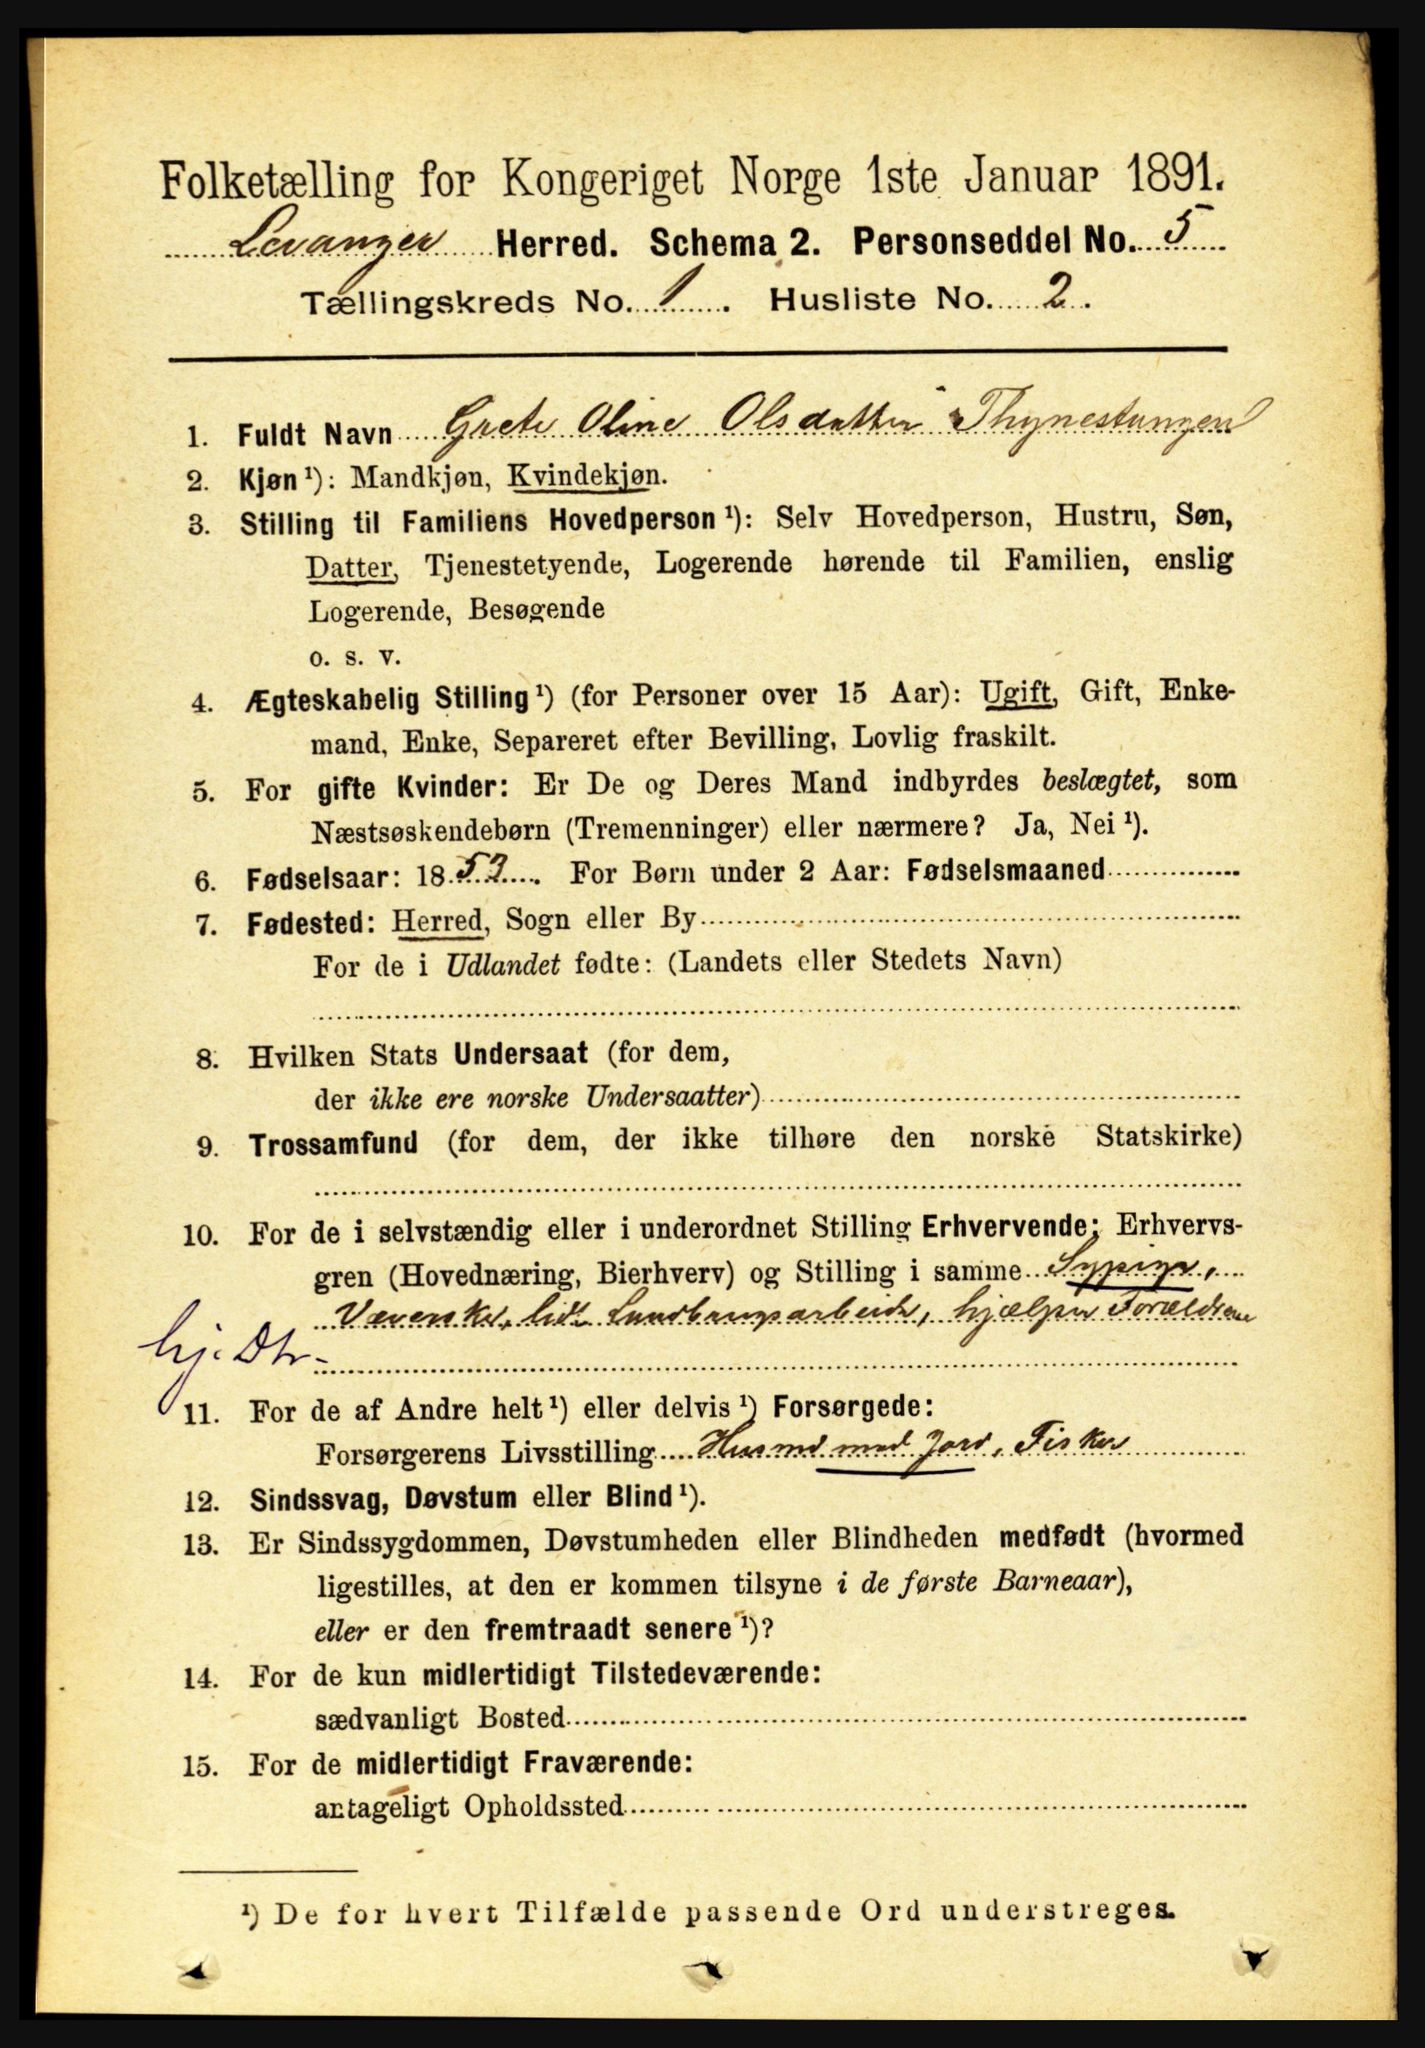 Folketælling for Kongeriget Norge 1ste Januar 1891.
Levanger Herred. Schema 2. Personseddel No. 5
Tællingskreds No. 1. Husliste No. 2.
1. Fuldt Navn Grete Oline Olsdatter Thynestangen
2. Kjøn ¹): Mandkjøn, Kvindekjøn.
3. Stilling til Familiens Hovedperson ¹): Selv Hovedperson, Hustru, Søn,
Datter, Tjenestetyende, Logerende hørende til Familien, enslig
Logerende, Besøgende
o. s. v.
4. Ægteskabelig Stilling ¹) (for Personer over 15 Aar): Ugift, Gift, Enke-
mand, Enke, Separeret efter Bevilling, Lovlig fraskilt.
5. For gifte Kvinder: Er De og Deres Mand indbyrdes beslægtet, som
Næstsøskendebørn (Tremenninger) eller nærmere? Ja, Nei ¹).
6. Fødselsaar: 1853. For Børn under 2 Aar: Fødselsmaaned
7. Fødested: Herred, Sogn eller By
For de i Udlandet fødte: (Landets eller Stedets Navn)
8. Hvilken Stats Undersaat (for dem,
der ikke ere norske Undersaatter)
9. Trossamfund (for dem, der ikke tilhøre den norske Statskirke)
10. For de i selvstændig eller i underordnet Stilling Erhvervende: Erhvervs-
gren (Hovednæring, Bierhverv) og Stilling i samme Sypige,
Væverske, lidt Landbrugsarbeide, hjælper Forældrene
hj. Dtr.
11. For de af Andre helt ¹) eller delvis ¹) Forsørgede:
Forsørgerens Livsstilling Husmd med Jord, Fisker
12. Sindssvag, Døvstum eller Blind ¹).
13. Er Sindssygdommen, Døvstumheden eller Blindheden medfødt (hvormed
ligestilles, at den er kommen tilsyne i de første Barneaar),
eller er den fremtraadt senere ¹)?
14. For de kun midlertidigt Tilstedeværende:
sædvanligt Bosted
15. For de midlertidigt Fraværende:
antageligt Opholdssted
¹) De for hvert Tilfælde passende Ord understreges.